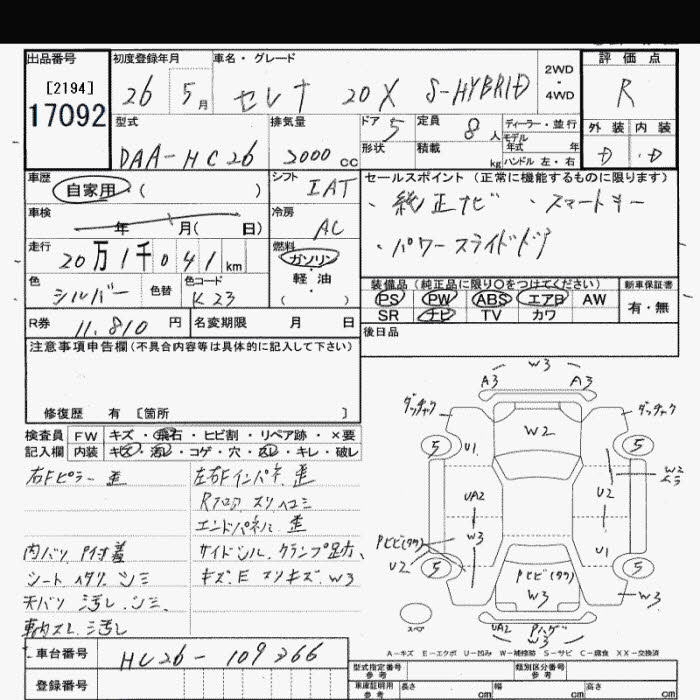 出品番号 初度登録年月 車名・グレード 評価点
[2194] 17092 26 5月 セレナ 20X S-HYBRID 2WD・4WD R
型式 排気量 ドア 定員 ディーラー・並行 外装 内装
DAA-HC26 2000cc 5 8人 モデル年式 年 D D
形状 積載 kg ハンドル 左・右
車歴 自家用・( ) シフト IAT セールスポイント (正常に機能するものに限ります)
車検 年 月( 日) 冷房 AC ・純正ナビ ・スマートキー
走行 20万1千041km 燃料 ガソリン・軽油・( ) ・パワースライドドア
色 シルバー 色替 色コード K23 装備品 (純正品に限り〇をつけてください) 新車保証書
PS PW ABS エアB AW 有・無
SR ナビ TV カワ
R券 11,810円 名変期限 月 日 後日品
注意事項申告欄(不具合内容等は具体的に記入して下さい)
修復歴 有 [箇所 ]
検査員記入欄 FW キズ・飛石・ヒビ割・リペア跡・×要
内装 キズ・汚レ・コゲ・穴・スレ・キレ・破レ
右Fピラー 歪 左右Fインパネ 歪
Rフロア スリ ヘコミ
エンドパネル 歪
内バリ P付着 サイドシル、クランプ足跡、
シート ヘタリ シミ キズ.E スリキズ W3
天バリ 汚レ.シミ
車内スレ.汚レ
車台番号 HC26-109266
登録番号
W3
A3 A3
ダッチャク ダッチャク
W2
5 5
U1 W2
U2
UA2
W3
Pヒビ(タク)
U2 U1
5 5
Pヒビ(タク)
W3 W3
スペア
UA2 Pハゲ
W3
A-キズ E-エクボ U-凹み W-補修跡 S-サビ C-腐食 XX-交換済
型式指定番号 参考 類別区分番号 参考
車庫証明用 参考 長さ cm 幅 cm 高さ cm